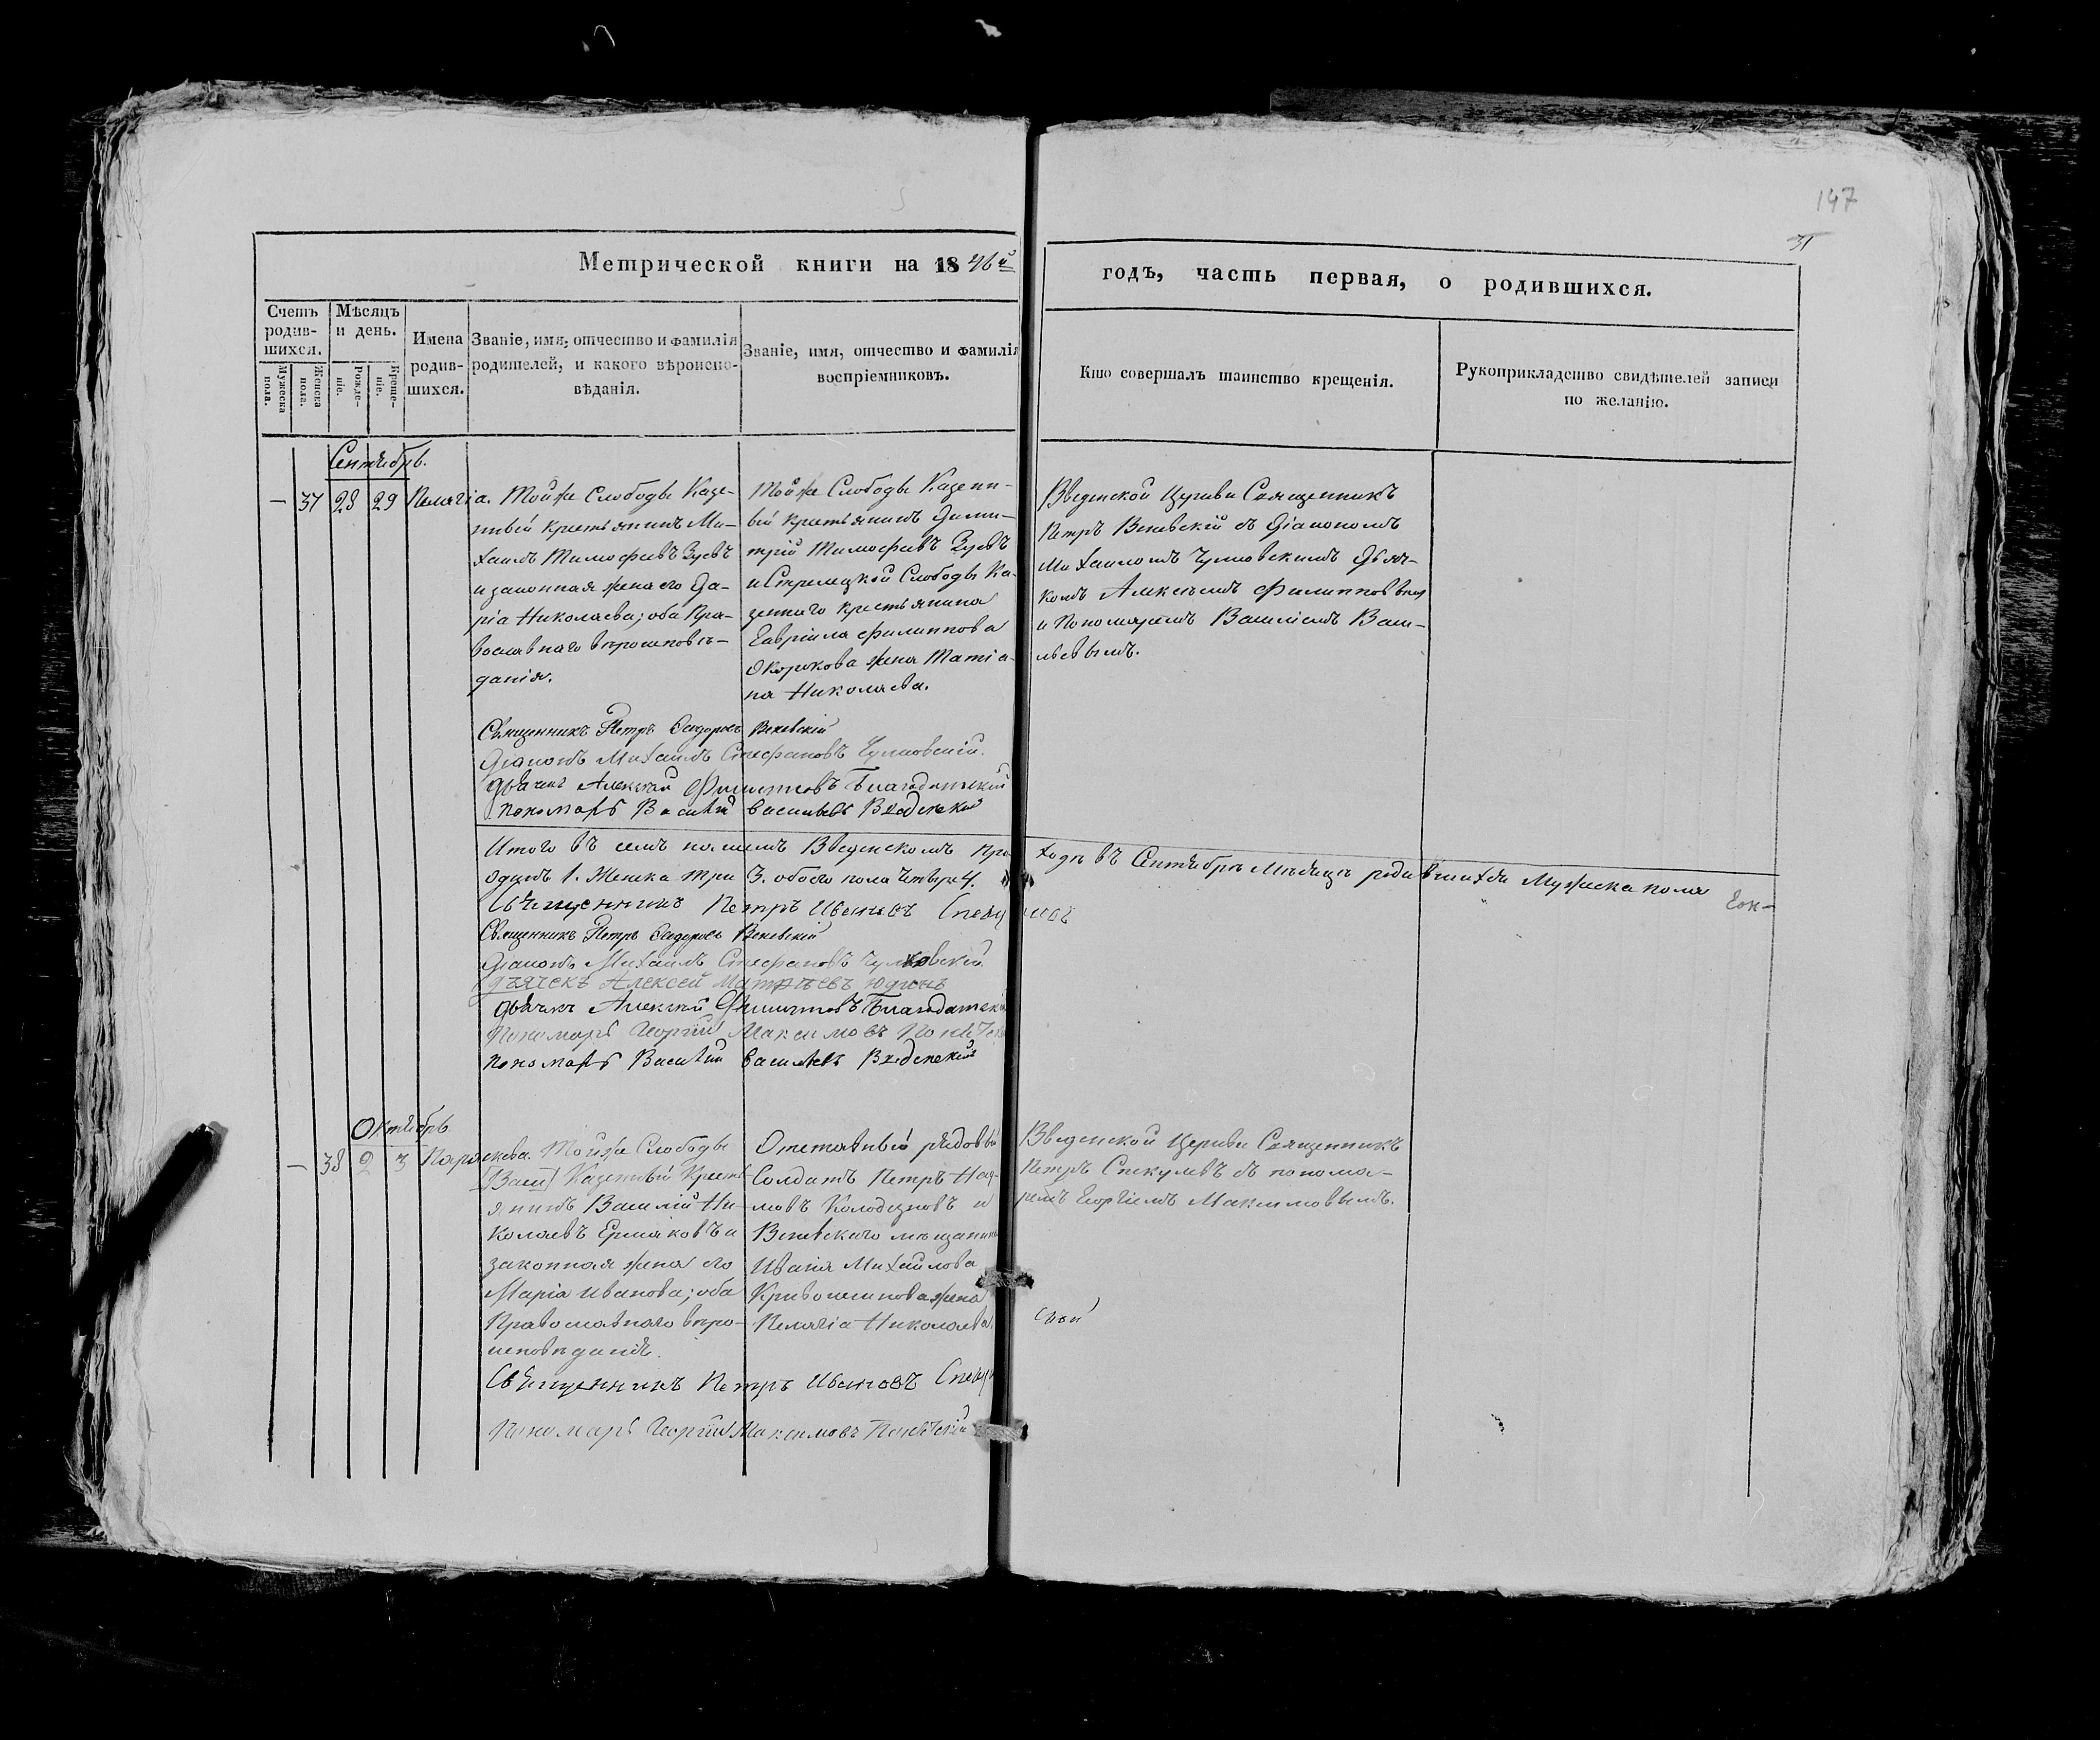 147
31
Метрической книги на 1846й
годъ, часть первая, о родившихся.
Счетъ родив-шихся.
Мужеска пола.
Женска пола.
Мѣсяцъ и день.
Рожде-ніе.
Креще-ніе.
Имена родив-шихся.
Званіе, имя, отчество и фамилія родителей, и какого вѣроиспо-вѣданія.
Званіе, имя, отчество и фамилія воспріемниковъ.
Кто совершалъ таинство крещенія.
Рукоприкладство свидѣтелей записи по желанію.
Сентябрь.
— 37 28 29 Пелагіа.
Тойже Слободы Казе-
нный крестьянинъ Ми-
хаилъ Тимофѣевъ Зуевъ
и законная жена его Да-
рiа Николаева; оба Пра-
вославнаго вѣроисповѣ-
данія.
Тойже Слободы Казенн-
ый крестьянинъ Дими-
трій Тимофѣевъ Зуевъ
и Стрелецкой Слободы Ка-
зеннаго крестьянина
Гавріила Филиппова
Окорокова жена Татіа-
на Николаева.
Введенской Церкви Священникъ
Петръ Веневскій съ Діакономъ
Михаиломъ Чулковскимъ Дьяч-
комъ Алексѣемъ Филипповымъ
и Пономаремъ Василіемъ Васи-
льевымъ.
Священникъ Петръ Сидоровъ Веневскій
Діаконъ Михаилъ Стефановъ Чулковскій.
Дьячекъ Алексѣй Филипповъ Благодатскій
Пономарь Василій Васильевъ Введенскій
Итого въ семъ нашемъ Введенскомъ При-
ходѣ въ Сентябрѣ Мѣсяцѣ родившихся Мужеска пола
одинъ 1. Женска три 3. обоего пола четыре 4.
Священникъ Петръ Ивановъ Спекулевъ
Священникъ Петръ Сидоровъ Веневскій
Діаконъ Михаилъ Стефановъ Чулковскій
Дьячекъ Алексей Матвѣевъ Юдинъ
Дьячекъ Алексѣй Филипповъ Благодатскій
Пономарь Георгій Максимовъ
Пономарь Василій Васильевъ Введенскій
Октябрь
— 38 2 3 Параскева.
Тойже Слободы
[Васи] Казенный Кресть-
янинъ Василій Ни-
колаевъ Ермаковъ и
законная жена его
Марiа Иванова; оба
Православнаго вѣро-
исповѣданія.
Отставный рядовый
Солдатъ Петръ Нау-
мовъ Колодезновъ и
Веневскаго мѣщанина
Ивана Михайлова
Кривошеинова жена
Пелагіа Николаева.
Введенской Церкви Священникъ
Петръ Спекулевъ съ понома-
ремъ Георгіемъ Максимовымъ.
Священникъ Петръ Ивановъ
Пономарь Георгій Максимовъ